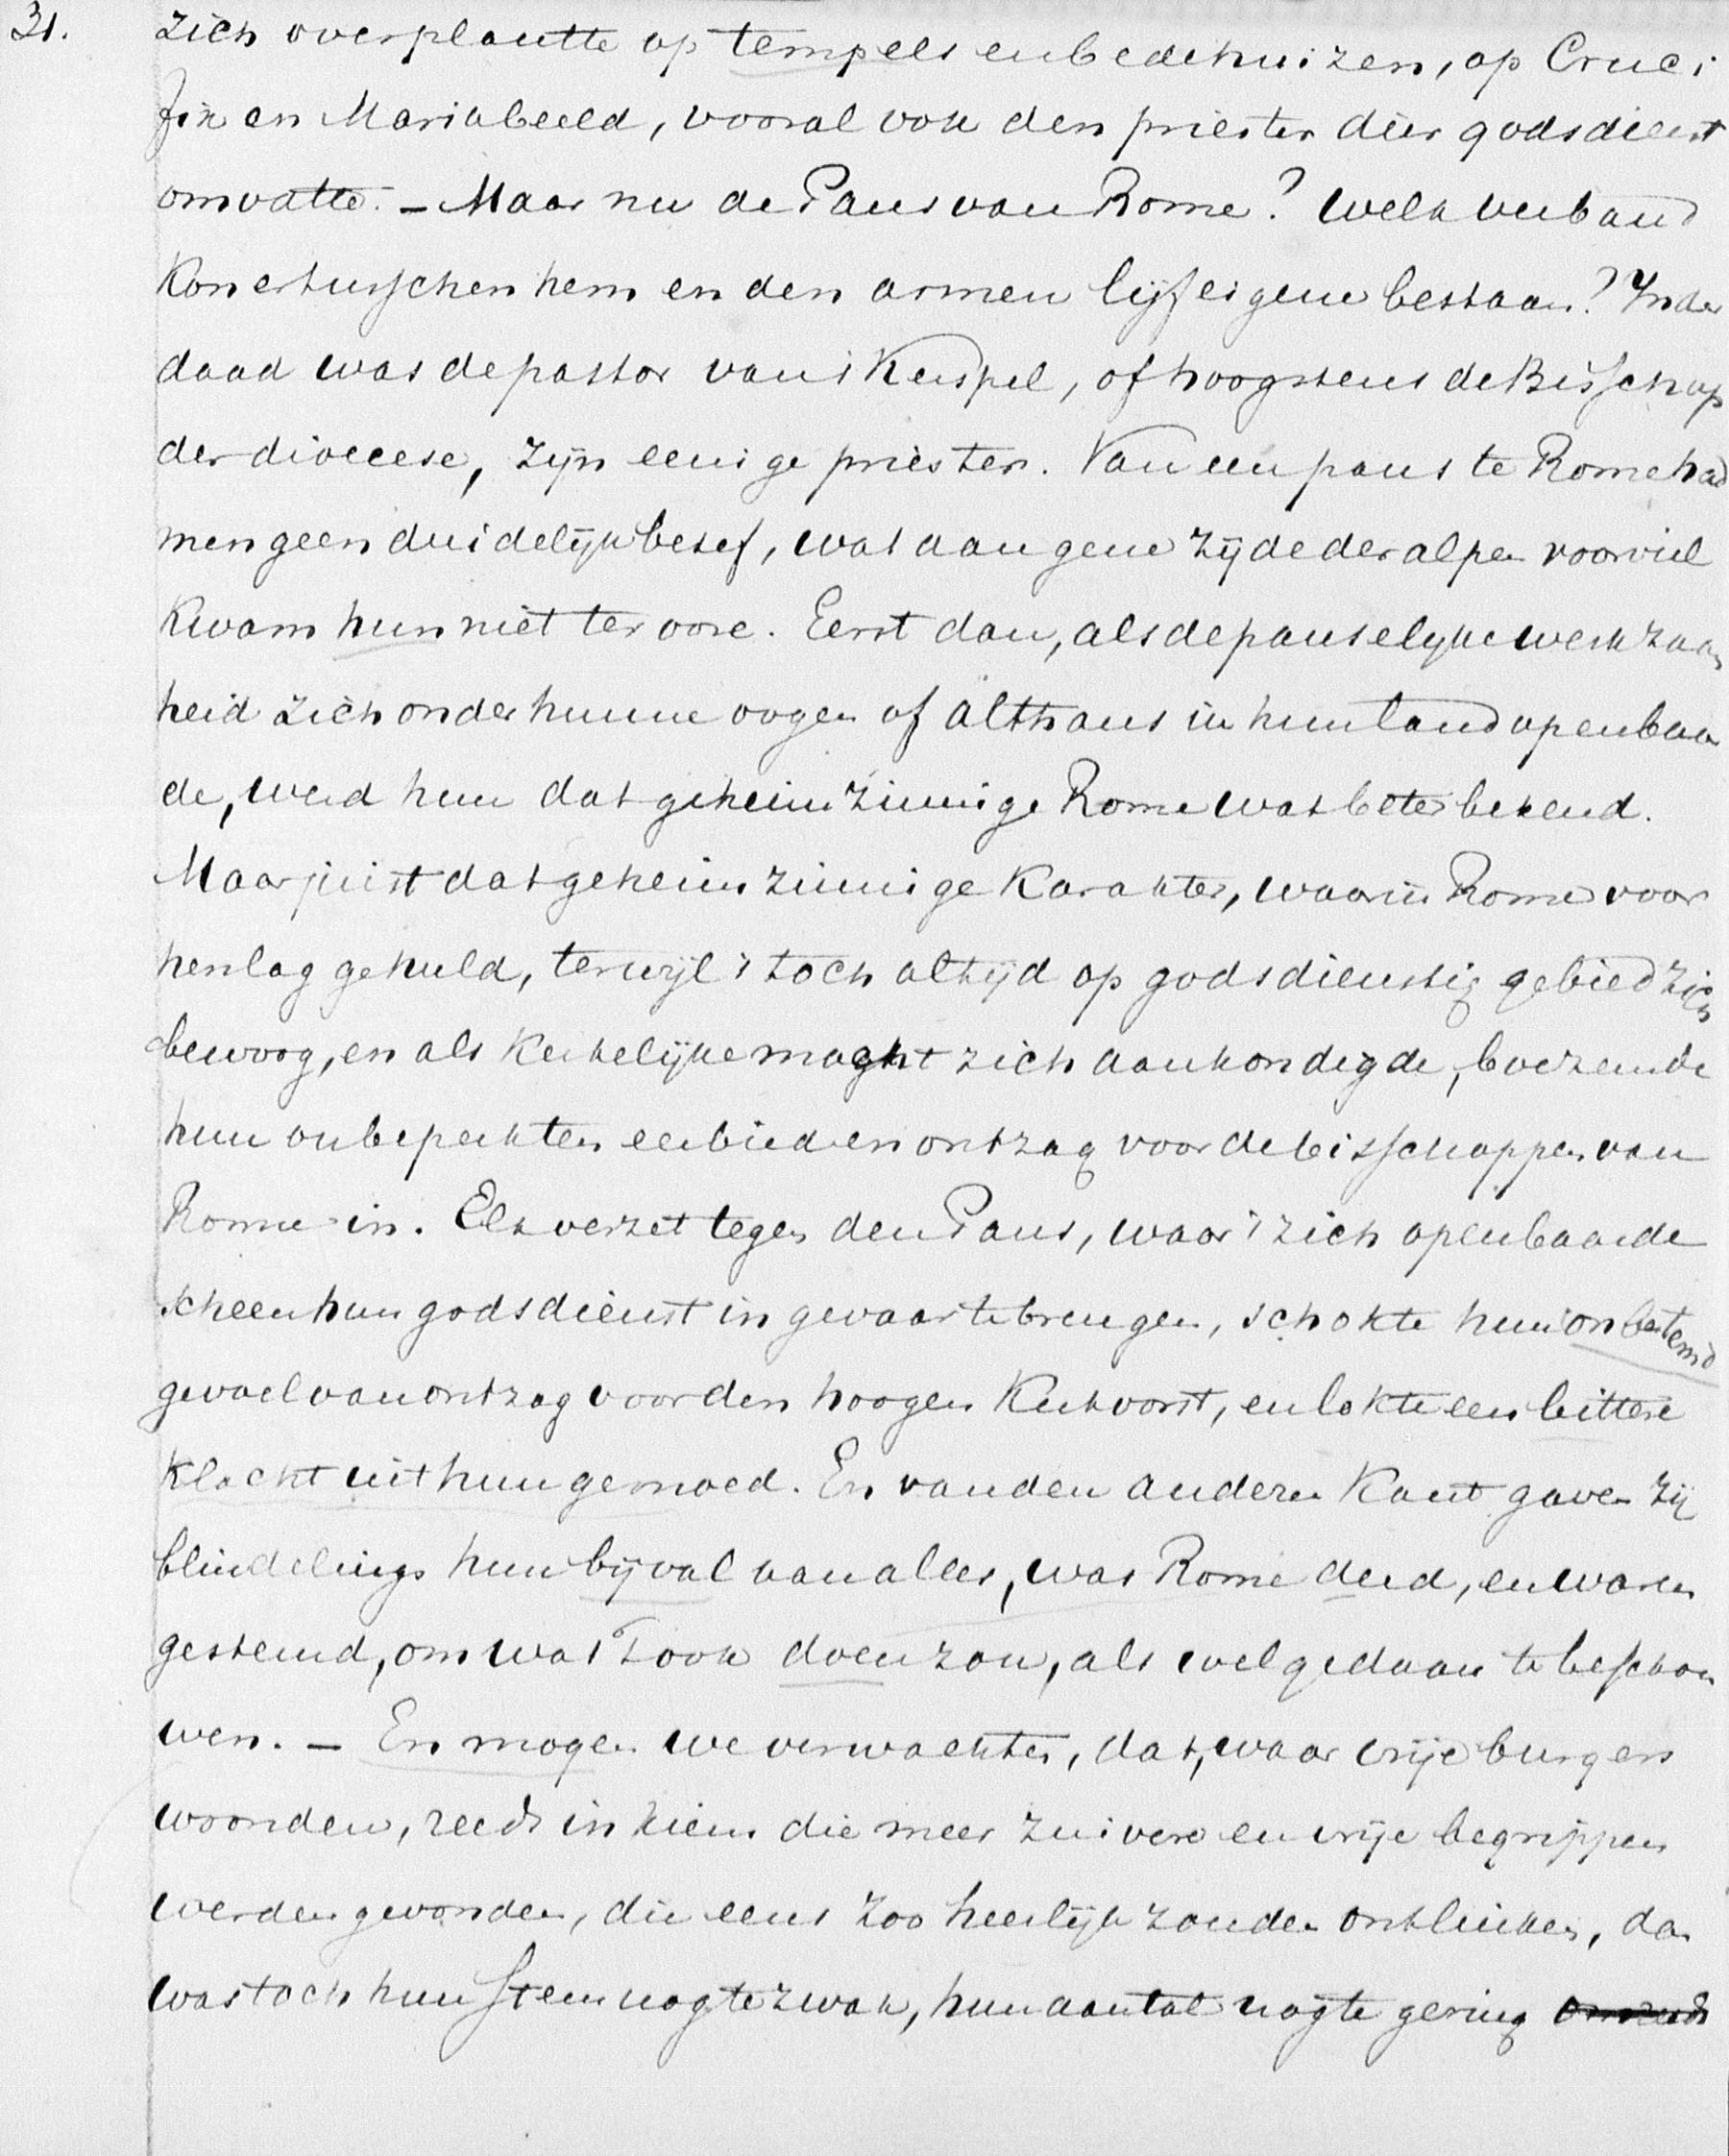 31.
zich overplantte op tempels en bedehuizen, op Cruci
fix en Mariabeeld, vooral ook den priester dier godsdienst
omvatte. – Maar nu de Paus van Rome? Welk verband
kon er tusschen hem en den armen lijfeigene bestaan? Inder
daad was de pastor van 't Kerspel, of hoogstens de Bisschop
der diocese, zijn eenige priester. Van een paus te Rome had
men geen duidelijk besef, wat aan gene zijde der alpen voorviel
kwam hun niet ter oore. Eerst dan, als de pauselijke werkzaam
heid zich onder hunne oogen of althans in hun land openbaar
de, werd hun dat geheimzinnige Rome wat beter bekend.
Maar juist dat geheimzinnige karakter, waarin Rome voor
hen lag gehuld, terwijl 't toch altijd op godsdienstig gebied zich
bewoog, en als kerkelijke maght zich aankondigde, boezemde
hun onbeperkten eerbied en ontzag voor de bisschoppen van
Rome in. Elk verzet tegen den Paus, waar 't zich openbaarde
scheen hun godsdienst in gevaar te brengen, schokte hun onbetemd
gevoel van ontzag voor den hoogen Kerkvorst, en lokte een bittere
klacht uit hun gemoed. En van den anderen kant gaven zij
blindelings hun bijval aan alles, was Rome deed, en waren
gestemd, om wat 't ook doen zou, als welgedaan te beschou
wen. – En mogen we verwachten, dat, waar vrije burgers
woonden, reeds in kiem die meer zuivere en vrije begrippen
werden gevonden, die eens zoo heerlijk zouden ontluiken, dan
was toch hun stem nog te zwak, hun aantal nog te gering